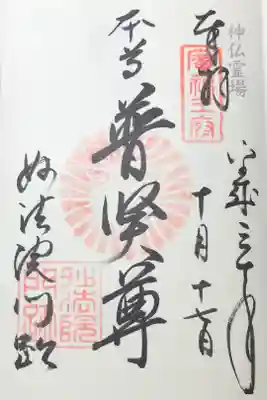 神仏霊場
奉拝
平成三十年
十月十七日
本尊
普賢尊
妙法院門跡
妙法院
門跡